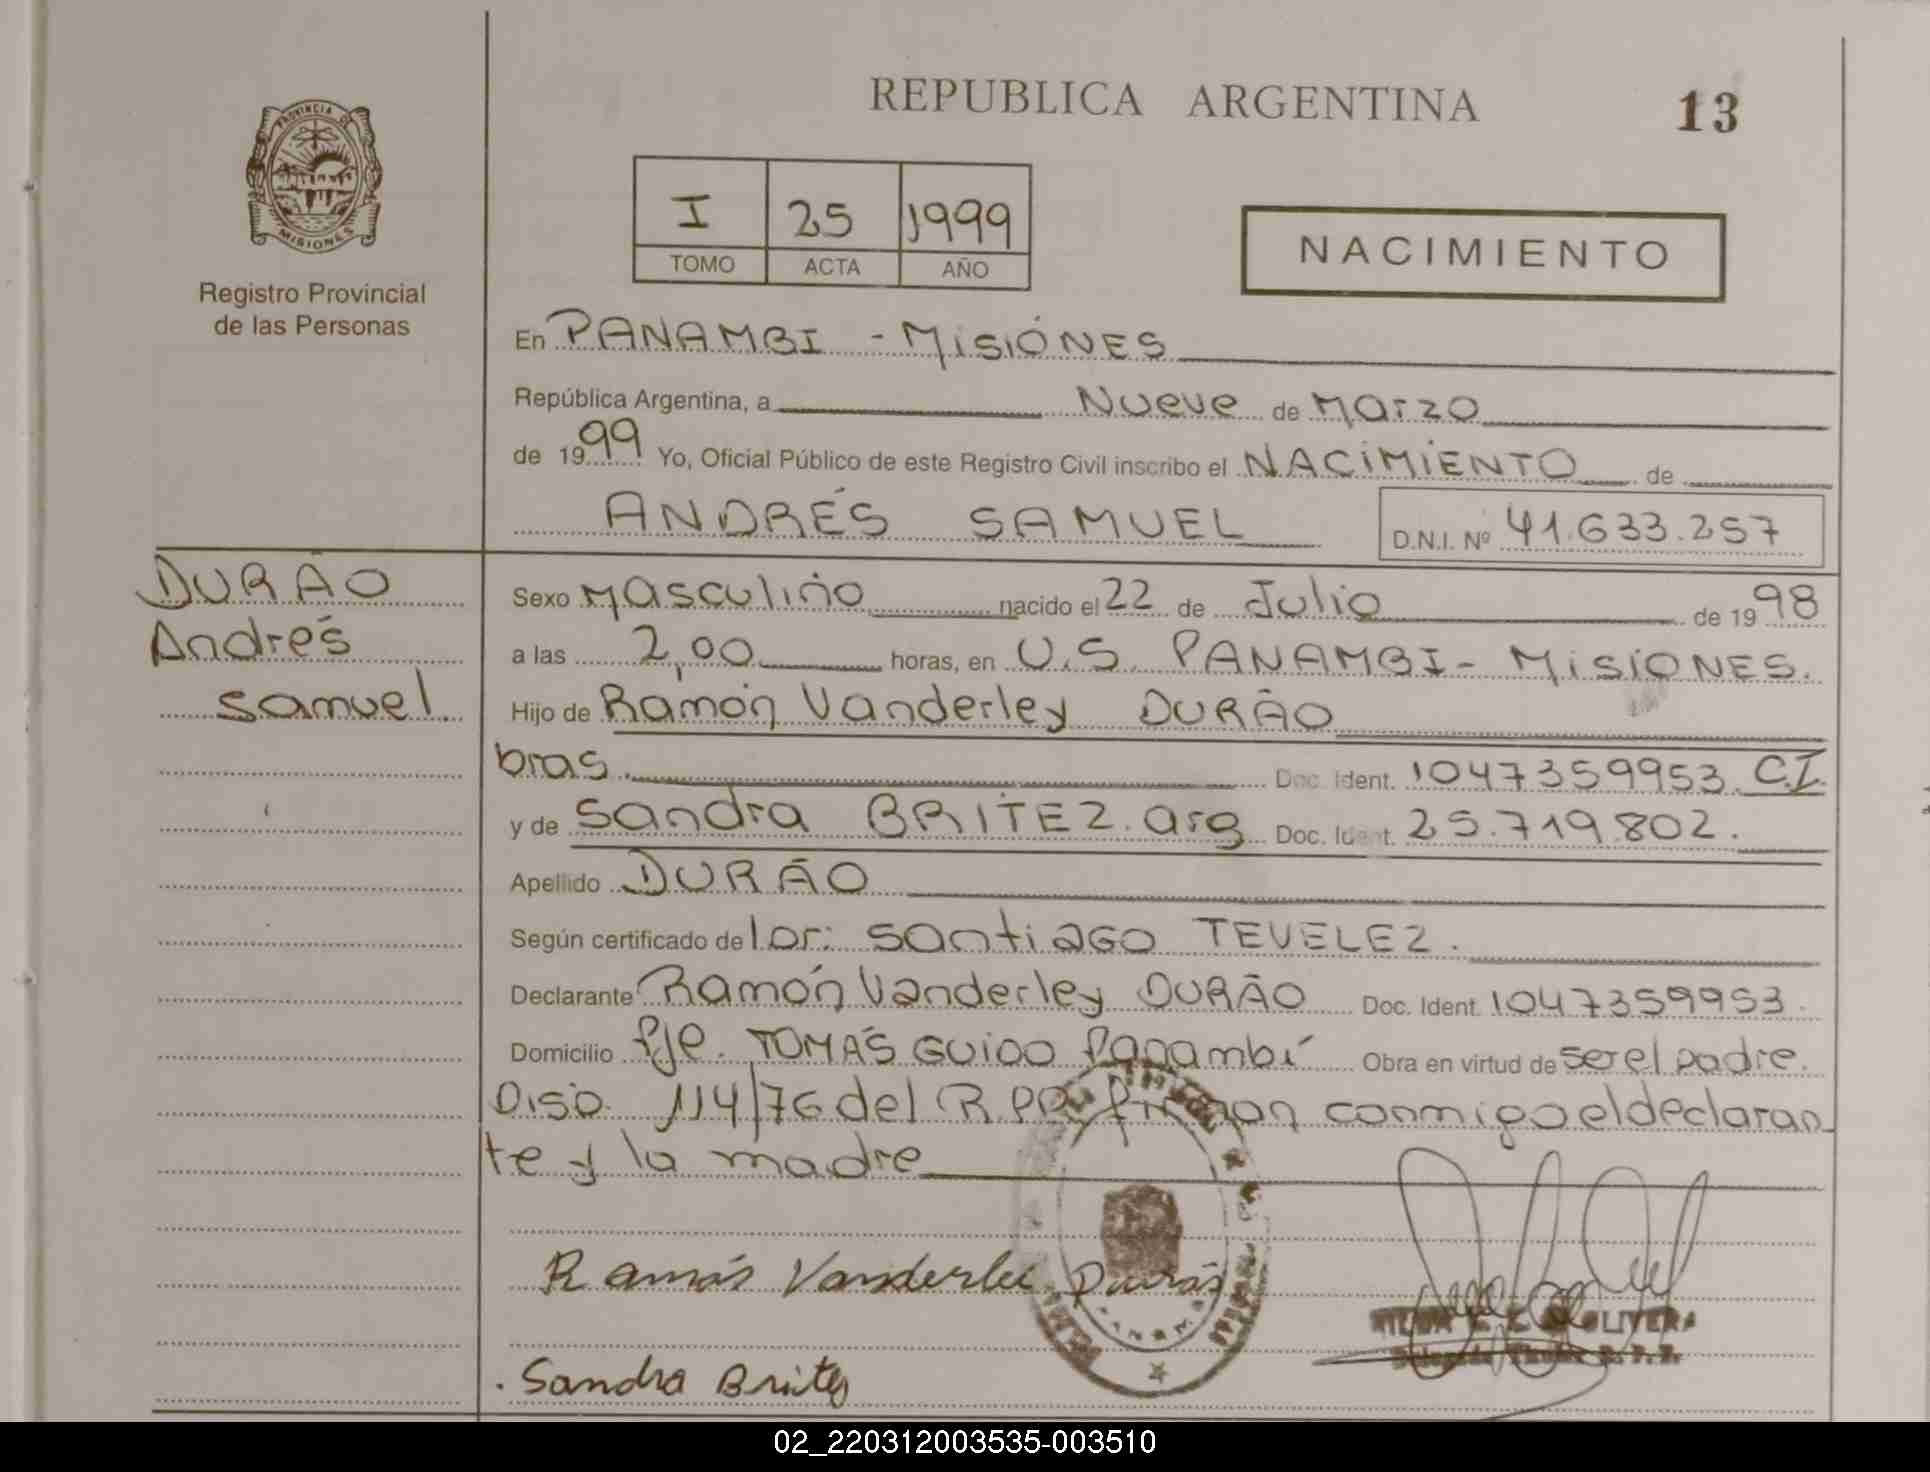 REPUBLICA ARGENTINA
13
PROVINCIA DE
MISIONES
Registro Provincial
de las Personas
I 25 1999
TOMO ACTA AÑO
NACIMIENTO
En PANAMBI - MISIÓNES
República Argentina, a Nueve de Marzo
de 1999 Yo, Oficial Público de este Registro Civil inscribo el NACIMIENTO de
ANDRÉS SAMUEL D.N.I. Nº 41.633.257
DURÃO
Andrés
Samuel
Sexo Masculino nacido el 22 de Julio de 1998
a las 2,00 horas, en U.S. PANAMBI - MISIONES.
Hijo de Ramón Vanderley DURÃO
bras. Doc. Ident. 1047359953. C.I.
y de Sandra BRITEZ. arg Doc. Ident. 25.719.802.
Apellido DURÃO
Según certificado de Santiago TEVELEZ.
Declarante Ramón Vanderley DURÃO Doc. Ident. 1047359953.
Domicilio Pje. TOMÁS GUIDO Panambí Obra en virtud de ser el padre.
Disp. 114/76 del R.P.P. firman conmigo el declaran
te y la madre
Ramón Vanderlei Durão
OLIVERA
Sandra Britez
02_220312003535-003510